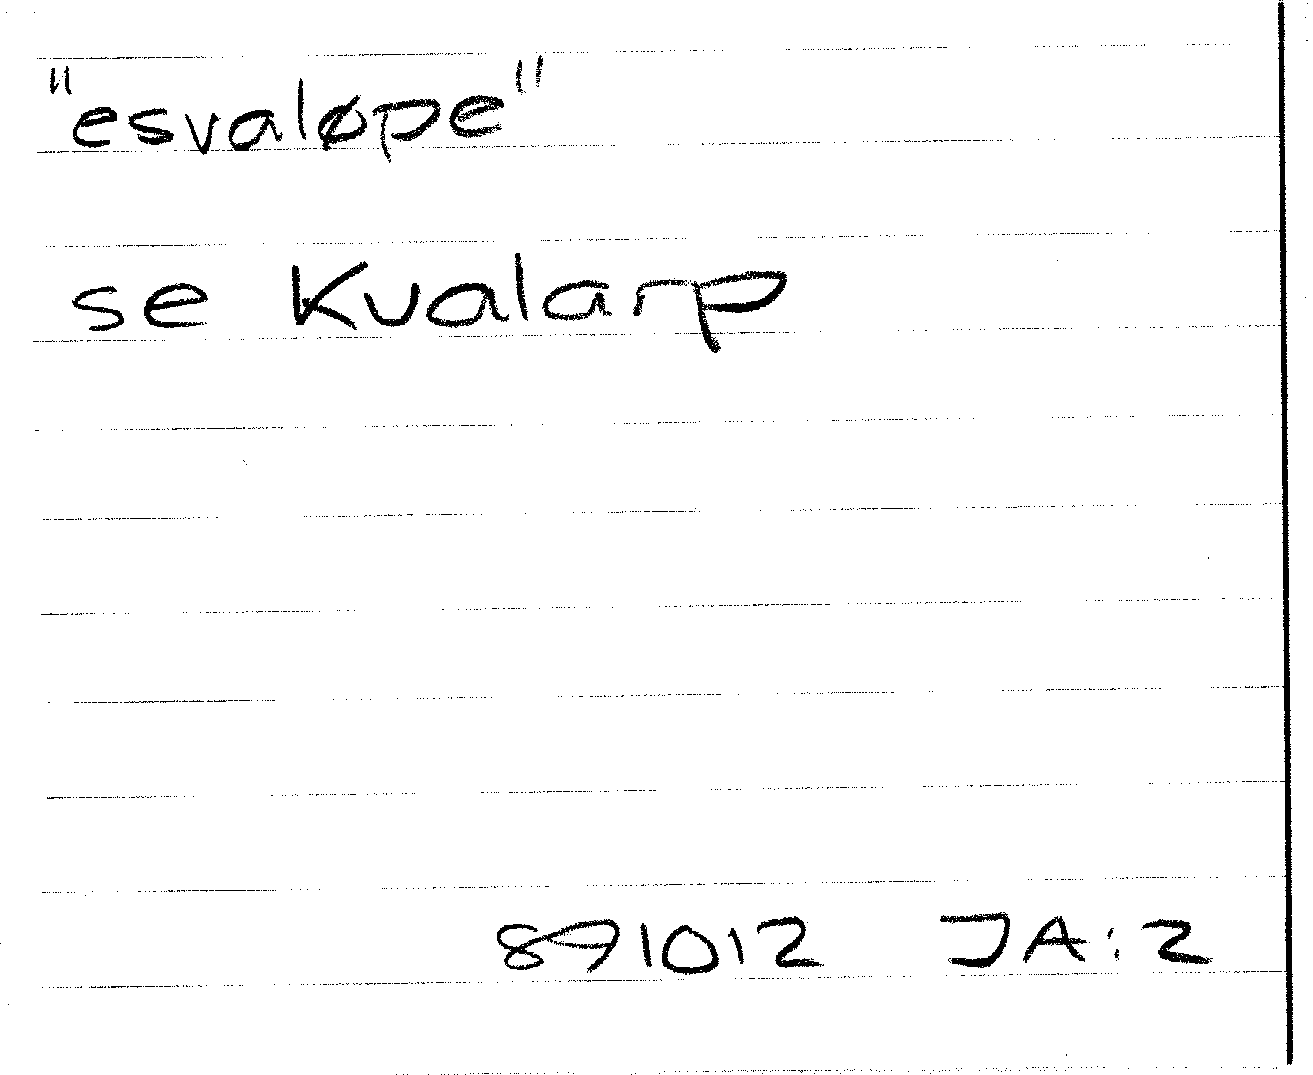 "esvaløpe"
se Kvalarp
891012 JA:2